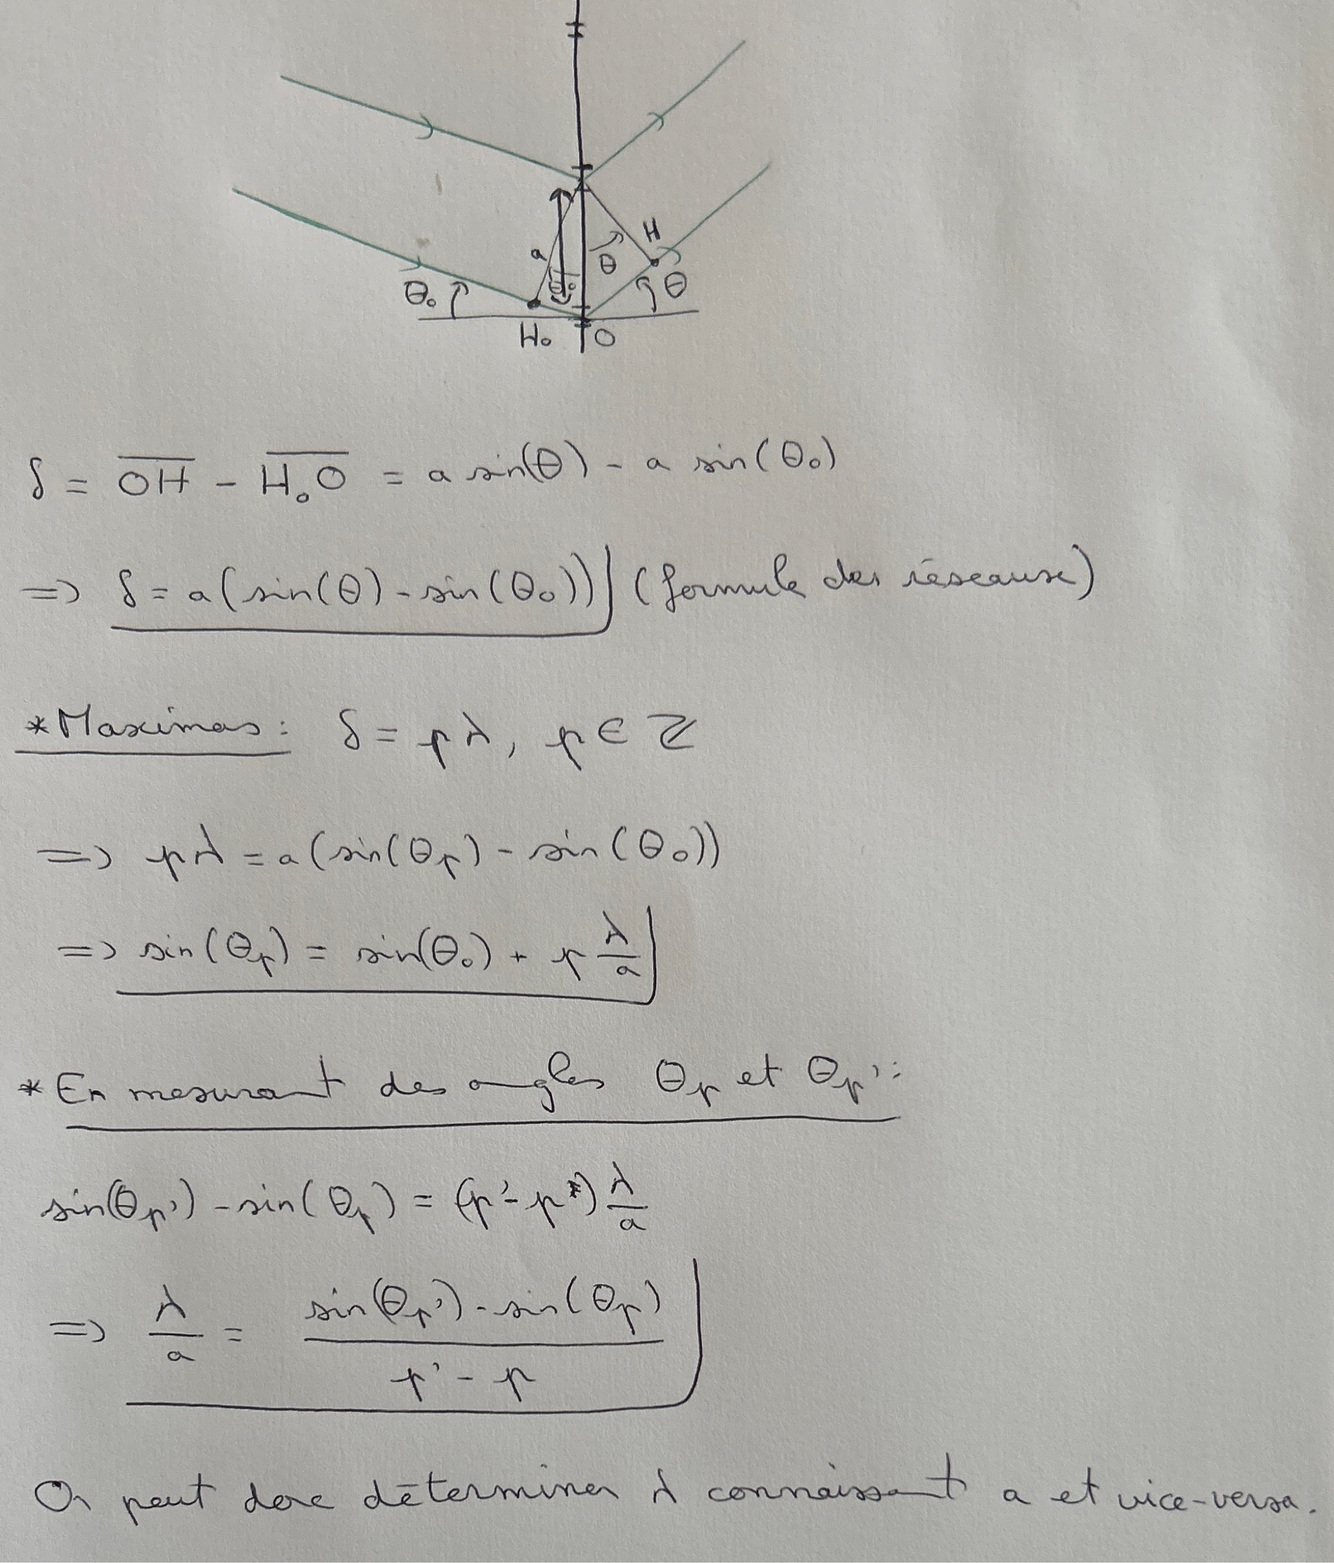 a
θ₀
θ₀
θ
H
θ
H₀
O
δ = OH - H₀O = a sin(θ) - a sin(θ₀)
=> δ = a(sin(θ) - sin(θ₀)) (formule des réseaux)
*Maximas: δ = pλ, p ∈ ℤ
=> pλ = a(sin(θp) - sin(θ₀))
=> sin(θp) = sin(θ₀) + p λ/a
*En mesurant des angles θp et θp':
sin(θp') - sin(θp) = (p' - p) λ/a
=> λ/a = (sin(θp') - sin(θp))/(p' - p)
On peut donc déterminer λ connaissant a et vice-versa.